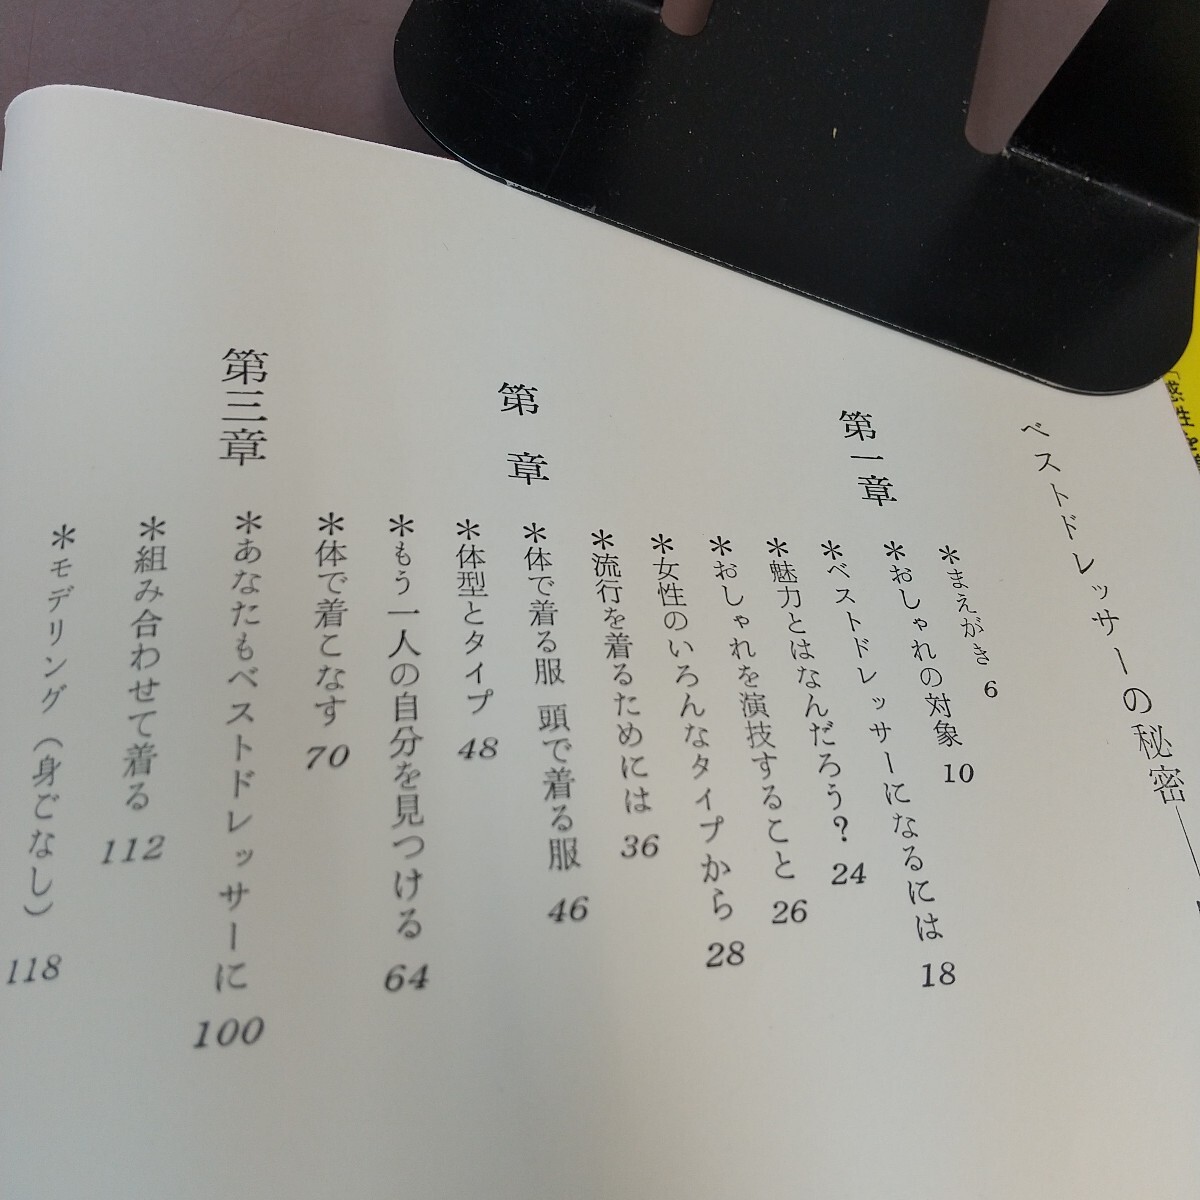 ベストドレッサーの秘密
＊まえがき 6
第一章
＊おしゃれの対象 10
＊ベストドレッサーになるには 18
＊魅力とはなんだろう？ 24
＊おしゃれを演技すること 26
＊女性のいろんなタイプから 28
＊流行を着るためには 36
第 章
＊体で着る服 頭で着る服 46
＊体型とタイプ 48
＊もう一人の自分を見つける 64
＊体で着こなす 70
第三章
＊あなたもベストドレッサーに 100
＊組み合わせて着る 112
＊モデリング（身ごなし） 118
「感性